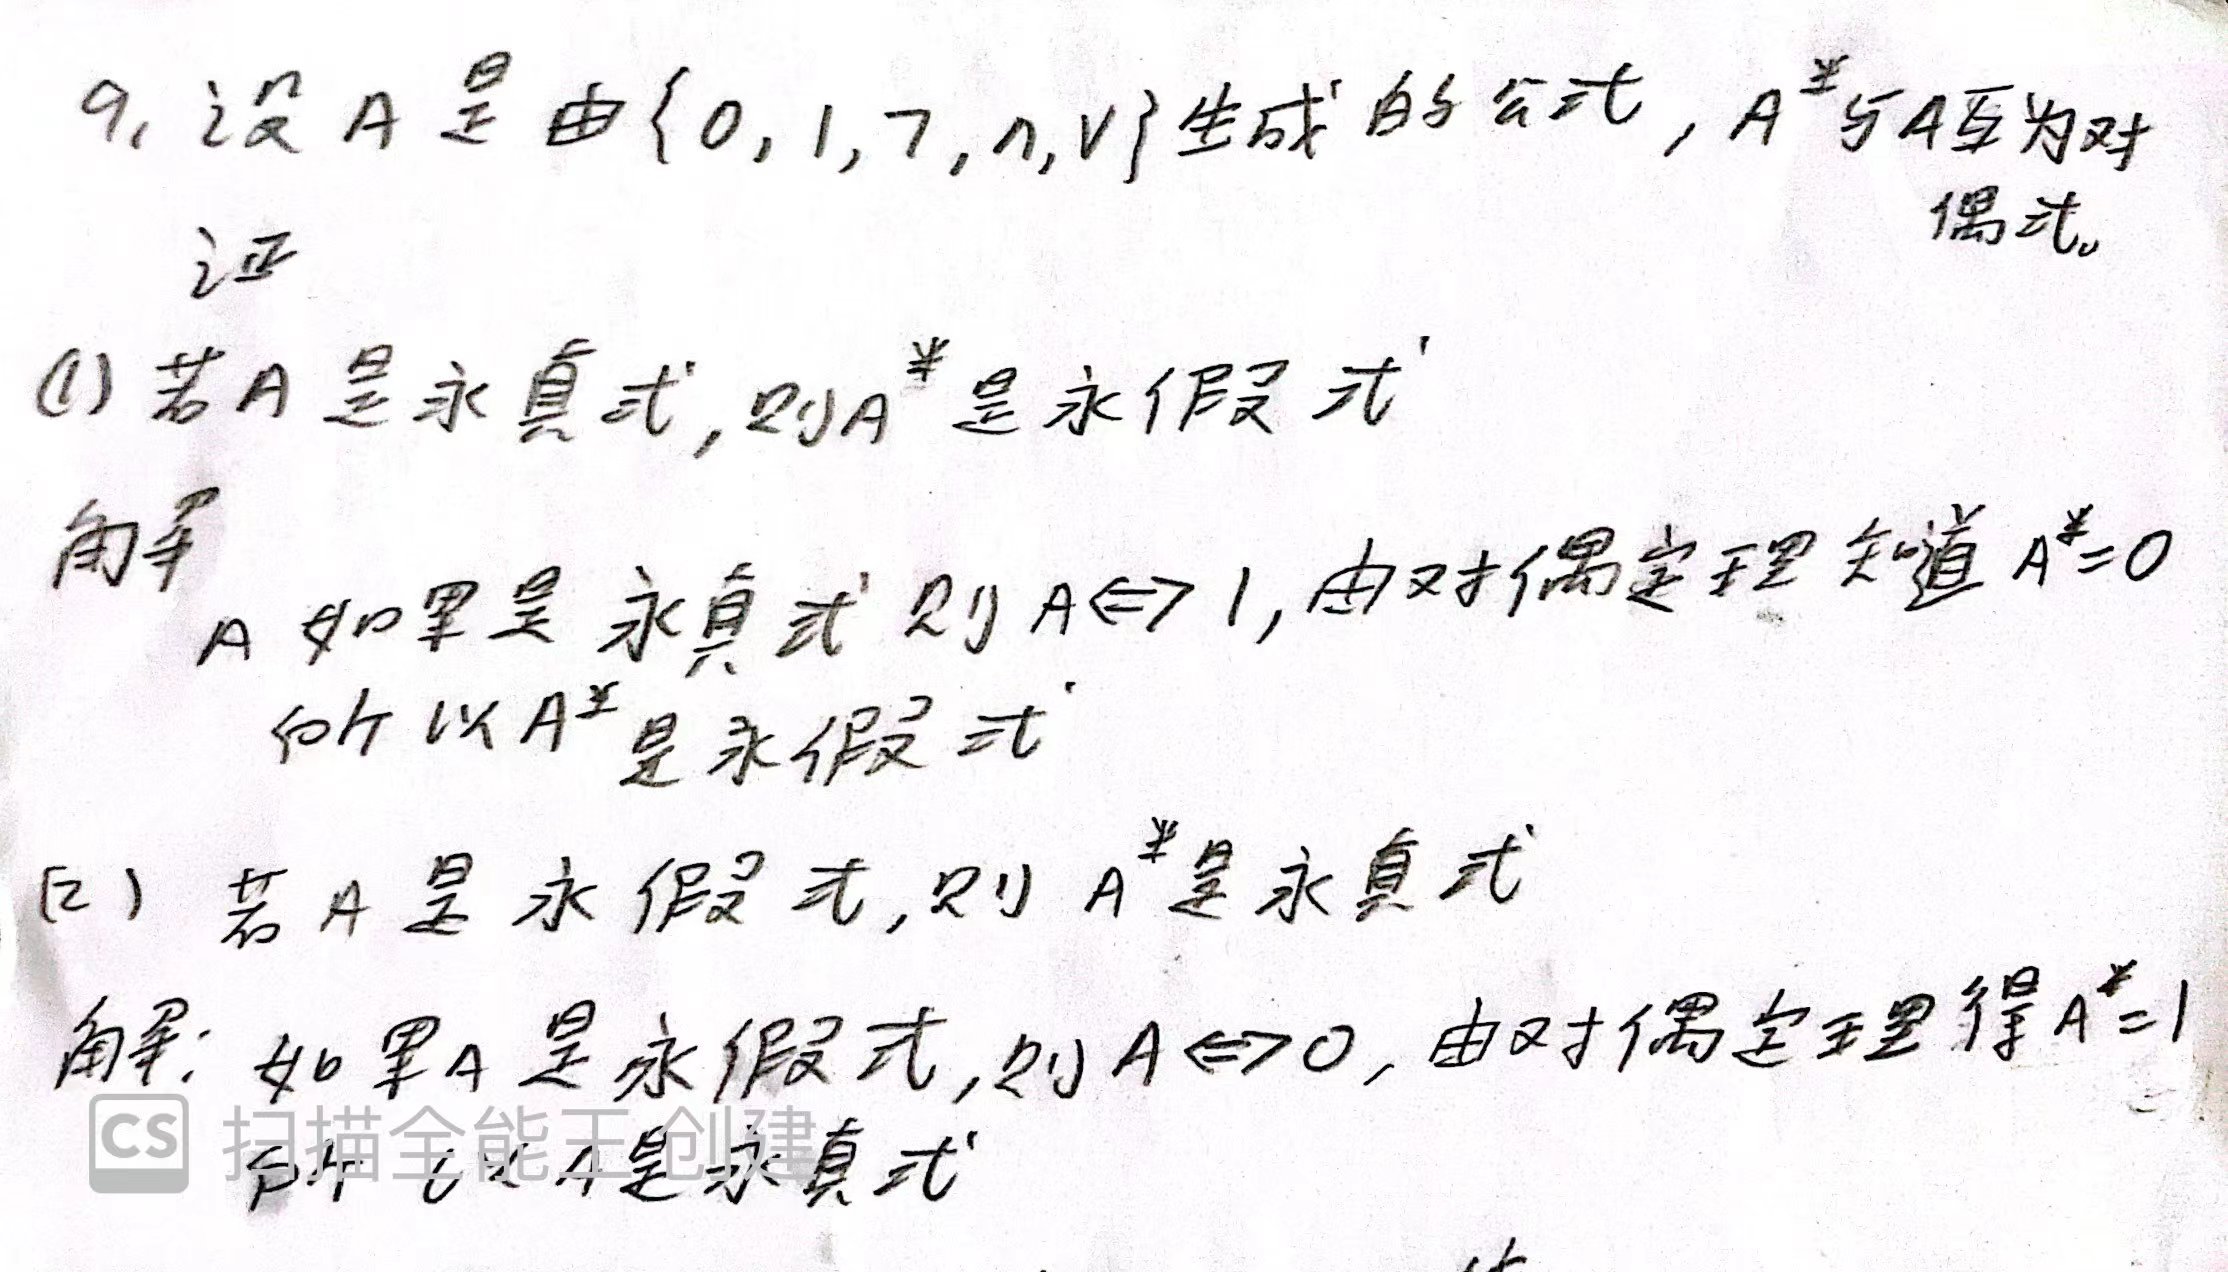 9, 设 A 是 由{0, 1, ¬, ∧, ∨}生成的公式, A*与A互为对
偶式。
证
(1) 若A是永真式, 则A*是永假式
解
A 如果是永真式 则 A⇔1, 由对偶定理知道 A*=0
所以A*是永假式
(2) 若A是永假式, 则 A*是永真式
解: 如果A是永假式, 则A⇔0, 由对偶定理得A*=1
所以A是永真式
CS 扫描全能王 创建